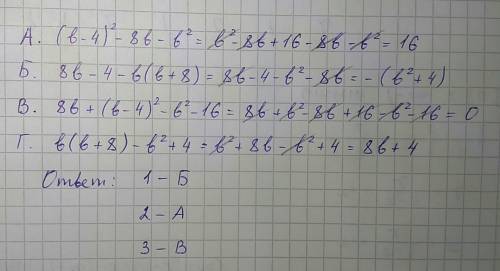 А. (в-4)² - 8в - в² = в² - 8в + 16 - 8в - в² = 16
Б. 8в - 4 - в(в+8) = 8в - 4 - в² - 8в = -(в²+4)
В. 8в + (в-4)² - в² - 16 = 8в + в² - 8в + 16 - в² - 16 = 0
Г. в(в+8) - в² + 4 = в² + 8в - в² + 4 = 8в + 4
Ответ: 1 - Б
2 - А
3 - В